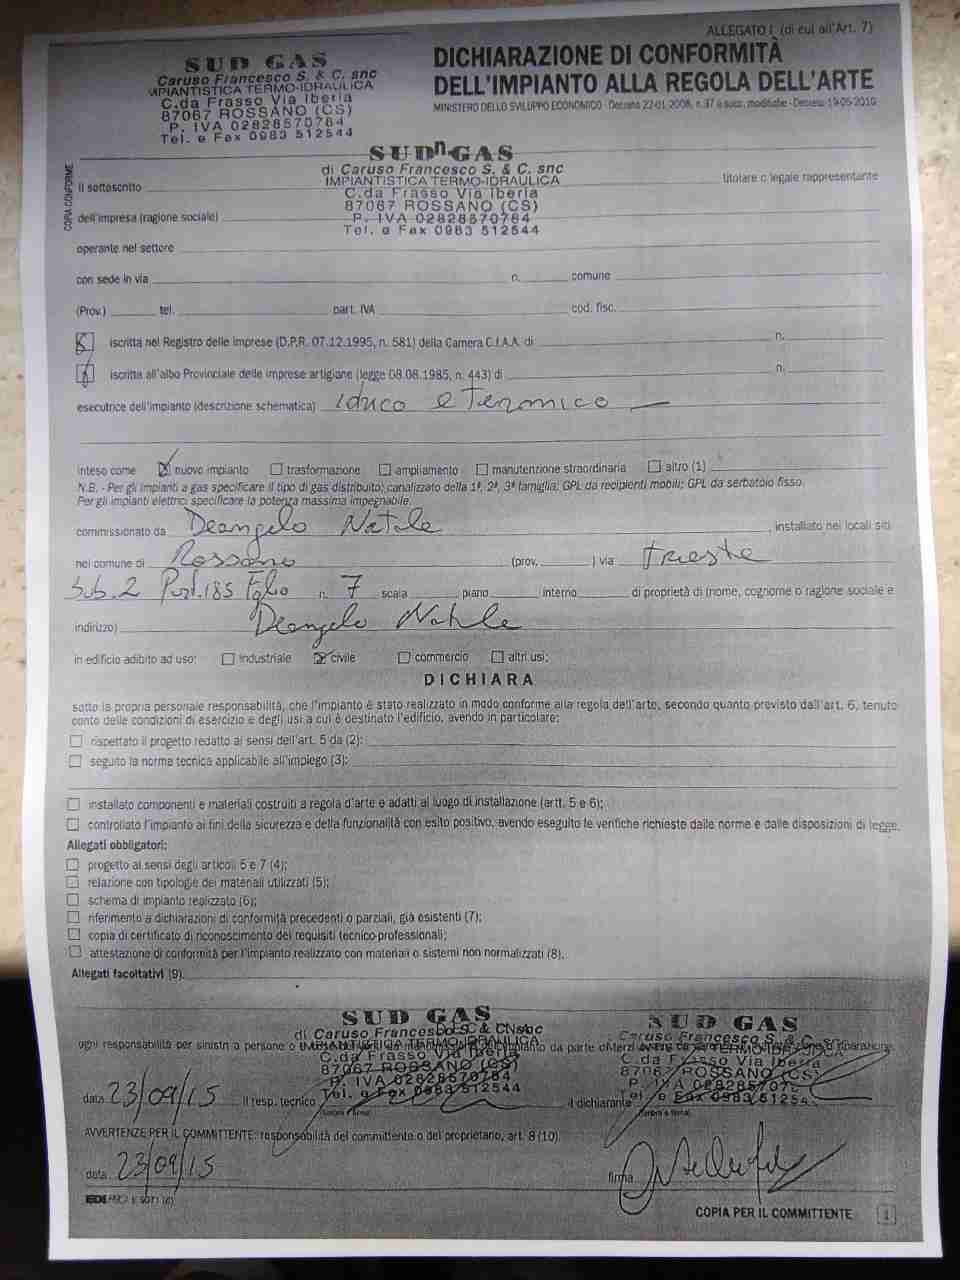 ALLEGATO I (di cui all'Art. 7)
SUD GAS
Caruso Francesco S. & C. snc
IMPIANTISTICA TERMO-IDRAULICA
C.da Frasso Via Iberia
87067 ROSSANO (CS)
P. IVA 02828570784
Tel. e Fax 0983 512544
DICHIARAZIONE DI CONFORMITÀ
DELL'IMPIANTO ALLA REGOLA DELL'ARTE
MINISTERO DELLO SVILUPPO ECONOMICO - Decreto 22-01-2008, n. 37 e succ. modifiche - Decreto 19-05-2010
COPIA CONFORME
n
SUD GAS
di Caruso Francesco S. & C. snc
IMPIANTISTICA TERMO-IDRAULICA
C.da Frasso Via Iberia
87067 ROSSANO (CS)
P. IVA 02828570784
Tel. e Fax 0983 512544
Il sottoscritto titolare o legale rappresentante
dell'impresa (ragione sociale)
operante nel settore
con sede in via n. comune
(Prov.) tel. part. IVA cod. fisc.
iscritta nel Registro delle imprese (D.P.R. 07.12.1995, n. 581) della Camera C.I.A.A. di n.
iscritta all'albo Provinciale delle imprese artigiane (legge 08.08.1985, n. 443) di n.
esecutrice dell'impianto (descrizione schematica) idrico e Termico
inteso come nuovo impianto trasformazione ampliamento manutenzione straordinaria altro (1)
N.B. - Per gli impianti a gas specificare il tipo di gas distribuito: canalizzato della 1ª, 2ª, 3ª famiglia; GPL da recipienti mobili; GPL da serbatoio fisso.
Per gli impianti elettrici specificare la potenza massima impegnabile.
commissionato da Deangelo Natale , installato nei locali siti
nel comune di Rossano (prov. ) via Trieste
Sub. 2 Part. 185 Foglio n. 7 scala piano interno di proprietà di (nome, cognome o ragione sociale e
indirizzo) Deangelo Natale
in edificio adibito ad uso: industriale civile commercio altri usi;
DICHIARA
sotto la propria personale responsabilità, che l'impianto è stato realizzato in modo conforme alla regola dell'arte, secondo quanto previsto dall'art. 6, tenuto
conto delle condizioni di esercizio e degli usi a cui è destinato l'edificio, avendo in particolare:
rispettato il progetto redatto ai sensi dell'art. 5 da (2):
seguito la norma tecnica applicabile all'impiego (3):
installato componenti e materiali costruiti a regola d'arte e adatti al luogo di installazione (artt. 5 e 6);
controllato l'impianto ai fini della sicurezza e della funzionalità con esito positivo, avendo eseguito le verifiche richieste dalle norme e dalle disposizioni di legge.
Allegati obbligatori:
progetto ai sensi degli articoli 5 e 7 (4);
relazione con tipologie dei materiali utilizzati (5);
schema di impianto realizzato (6);
riferimento a dichiarazioni di conformità precedenti o parziali, già esistenti (7);
copia di certificato di riconoscimento dei requisiti tecnico-professionali;
attestazione di conformità per l'impianto realizzato con materiali o sistemi non normalizzati (8).
Allegati facoltativi (9)
SUD GAS
di Caruso Francesco S. & C. snc
IMPIANTISTICA TERMO-IDRAULICA
C.da Frasso Via Iberia
87067 ROSSANO (CS)
P. IVA 02828570784
Tel. e Fax 0983 512544
SUD GAS
Caruso Francesco S. & C. snc
TERMO-IDRAULICA
C.da Frasso Via Iberia
87067 ROSSANO (CS)
P. IVA 0282857078
e Fax 0983 512544
ogni responsabilità per sinistri a persone o
data 23/09/15 Il resp. tecnico il dichiarante
(timbro e firma) (timbro e firma)
AVVERTENZE PER IL COMMITTENTE: responsabilità del committente o del proprietario, art. 8 (10).
data 23/09/15 firma
COPIA PER IL COMMITTENTE 1